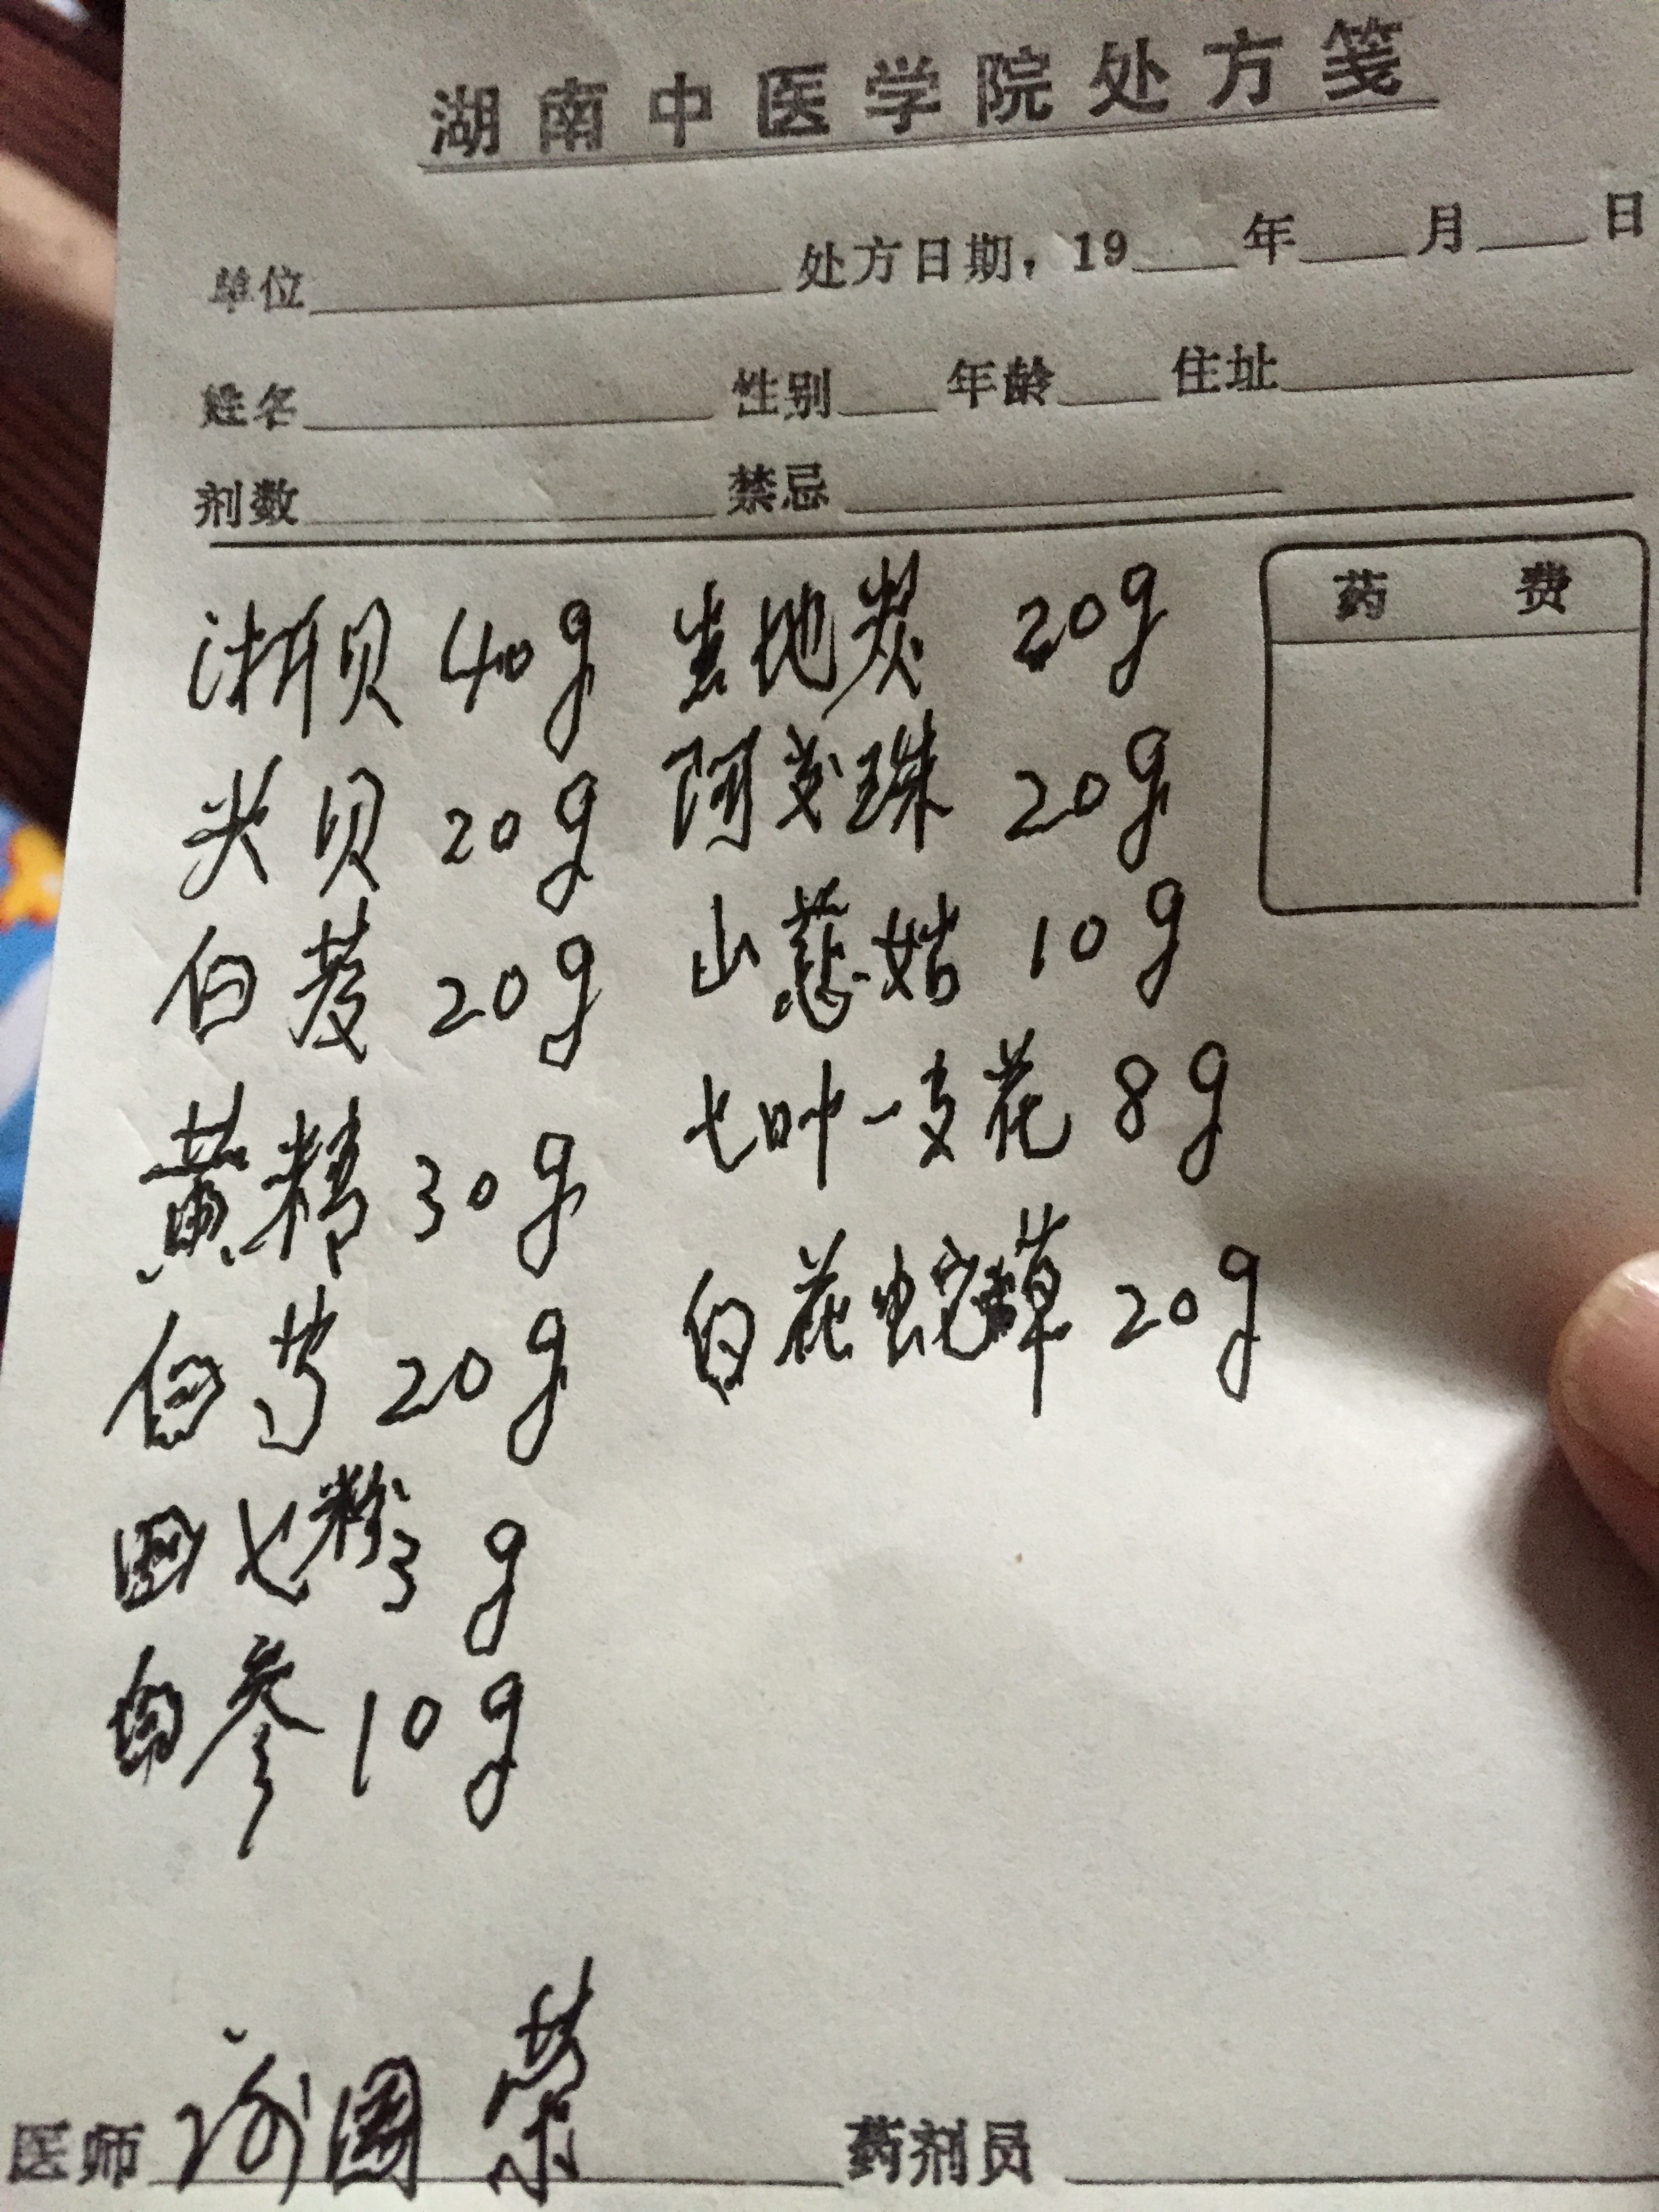 湖南中医学院处方笺
单位 处方日期，19 年 月 日
姓名 性别 年龄 住址
剂数 禁忌
药 费
浙贝 40g 生地炭 20g
尖贝 20g 阿胶珠 20g
白芨 20g 山慈姑 10g
黄精 30g 七叶一支花 8g
白芍 20g 白花蛇草 20g
田七粉 3g
白参 10g
医师 谢国荣 药剂员